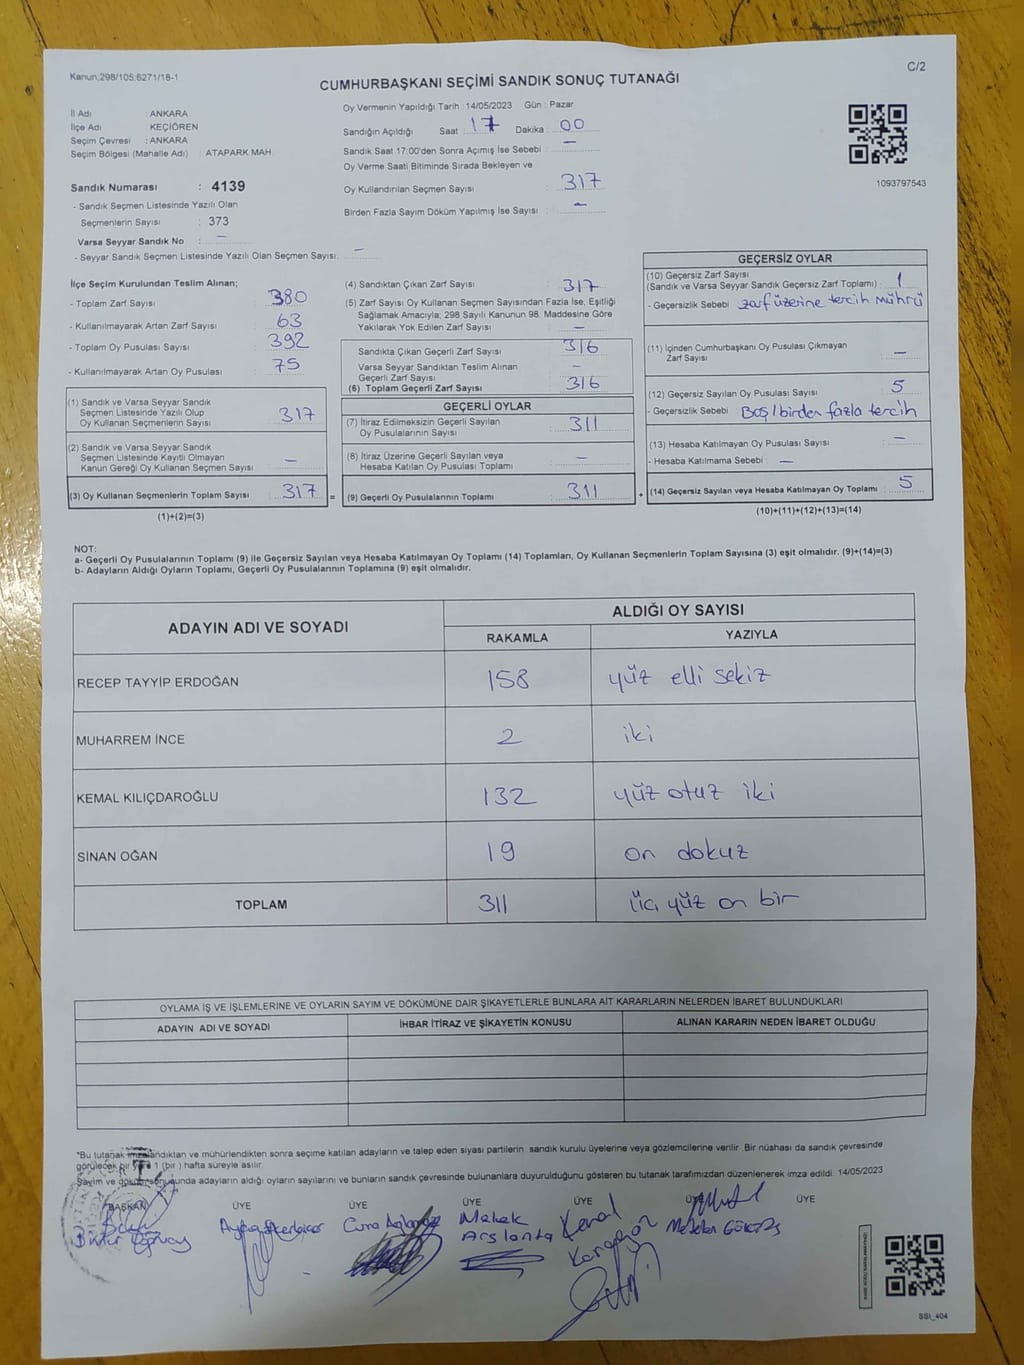 Kanun;298/105;6271/18-1
C/2
CUMHURBAŞKANI SEÇİMİ SANDIK SONUÇ TUTANAĞI
İl Adı : ANKARA
İlçe Adı : KEÇİÖREN
Seçim Çevresi : ANKARA
Seçim Bölgesi (Mahalle Adı) : ATAPARK MAH.
Sandık Numarası : 4139
- Sandık Seçmen Listesinde Yazılı Olan
Seçmenlerin Sayısı : 373
Varsa Seyyar Sandık No : -
- Seyyar Sandık Seçmen Listesinde Yazılı Olan Seçmen Sayısı: -
Oy Vermenin Yapıldığı Tarih : 14/05/2023 Gün : Pazar
Sandığın Açıldığı Saat : 17 Dakika : 00
Sandık Saat 17:00'den Sonra Açımış İse Sebebi : -
Oy Verme Saati Bitiminde Sırada Bekleyen ve
Oy Kullandırılan Seçmen Sayısı : 317
Birden Fazla Sayım Döküm Yapılmış İse Sayısı : -
1093797543
İlçe Seçim Kurulundan Teslim Alınan;
- Toplam Zarf Sayısı : 380
- Kullanılmayarak Artan Zarf Sayısı : 63
- Toplam Oy Pusulası Sayısı : 392
- Kullanılmayarak Artan Oy Pusulası : 75
(1) Sandık ve Varsa Seyyar Sandık
Seçmen Listesinde Yazılı Olup
Oy Kullanan Seçmenlerin Sayısı : 317
(2) Sandık ve Varsa Seyyar Sandık
Seçmen Listesinde Kayıtlı Olmayan
Kanun Gereği Oy Kullanan Seçmen Sayısı : -
(3) Oy Kullanan Seçmenlerin Toplam Sayısı : 317 =
(1)+(2)=(3)
(4) Sandıktan Çıkan Zarf Sayısı : 317
(5) Zarf Sayısı Oy Kullanan Seçmen Sayısından Fazla İse, Eşitliği
Sağlamak Amacıyla; 298 Sayılı Kanunun 98. Maddesine Göre
Yakılarak Yok Edilen Zarf Sayısı : -
Sandıkta Çıkan Geçerli Zarf Sayısı : 316
Varsa Seyyar Sandıktan Teslim Alınan
Geçerli Zarf Sayısı : -
(6) Toplam Geçerli Zarf Sayısı : 316
GEÇERLİ OYLAR
(7) İtiraz Edilmeksizin Geçerli Sayılan
Oy Pusulalarının Sayısı : 311
(8) İtiraz Üzerine Geçerli Sayılan veya
Hesaba Katılan Oy Pusulası Toplamı : -
(9) Geçerli Oy Pusulalarının Toplamı : 311 +
GEÇERSİZ OYLAR
(10) Geçersiz Zarf Sayısı
(Sandık ve Varsa Seyyar Sandık Geçersiz Zarf Toplamı) : 1
- Geçersizlik Sebebi : zarf üzerine tercih mührü
(11) İçinden Cumhurbaşkanı Oy Pusulası Çıkmayan
Zarf Sayısı : -
(12) Geçersiz Sayılan Oy Pusulası Sayısı : 5
- Geçersizlik Sebebi : Boş/birden fazla tercih
(13) Hesaba Katılmayan Oy Pusulası Sayısı : -
- Hesaba Katılmama Sebebi : -
(14) Geçersiz Sayılan veya Hesaba Katılmayan Oy Toplamı : 5
(10)+(11)+(12)+(13)=(14)
NOT:
a- Geçerli Oy Pusulalarının Toplamı (9) ile Geçersiz Sayılan veya Hesaba Katılmayan Oy Toplamı (14) Toplamları, Oy Kullanan Seçmenlerin Toplam Sayısına (3) eşit olmalıdır. (9)+(14)=(3)
b- Adayların Aldığı Oyların Toplamı, Geçerli Oy Pusulalarının Toplamına (9) eşit olmalıdır.
ADAYIN ADI VE SOYADI
ALDIĞI OY SAYISI
RAKAMLA YAZIYLA
RECEP TAYYİP ERDOĞAN 158 yüz elli sekiz
MUHARREM İNCE 2 iki
KEMAL KILIÇDAROĞLU 132 yüz otuz iki
SİNAN OĞAN 19 on dokuz
TOPLAM 311 üç yüz on bir
OYLAMA İŞ VE İŞLEMLERİNE VE OYLARIN SAYIM VE DÖKÜMÜNE DAİR ŞİKAYETLERLE BUNLARA AİT KARARLARIN NELERDEN İBARET BULUNDUKLARI
ADAYIN ADI VE SOYADI İHBAR İTİRAZ VE ŞİKAYETİN KONUSU ALINAN KARARIN NEDEN İBARET OLDUĞU
"Bu tutanak imzalandıktan ve mühürlendikten sonra seçime katılan adayların ve talep eden siyasi partilerin sandık kurulu üyelerine veya gözlemcilerine verilir. Bir nüshası da sandık çevresinde
görülecek bir yere 1 (bir) hafta süreyle asılır.
Sayım ve döküm sonucunda adayların aldığı oyların sayılarını ve bunların sandık çevresinde bulunanlara duyurulduğunu gösteren bu tutanak tarafımızdan düzenlenerek imza edildi. 14/05/2023
BAŞKAN ÜYE ÜYE ÜYE ÜYE ÜYE ÜYE
Melek
Arslanta
Kemal
SSI_404